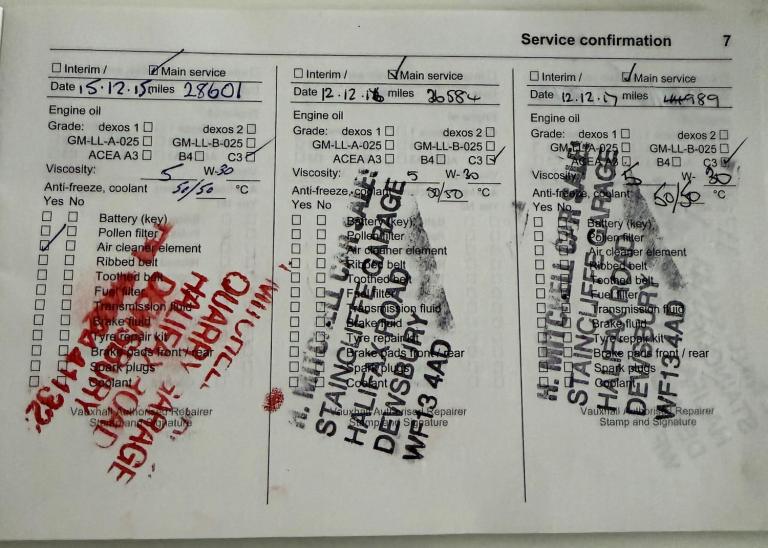 Service confirmation 7
Interim / Main service
Date 15.12.15 miles 28601
Engine oil
Grade: dexos 1 dexos 2
GM-LL-A-025 GM-LL-B-025
ACEA A3 B4 C3
Viscosity: 5 W-30
Anti-freeze, coolant 50/50 °C
Yes No
Battery (key)
Pollen filter
Air cleaner element
Ribbed belt
Toothed belt
Fuel filter
Transmission fluid
Brake fluid
Tyre repair kit
Brake pads front / rear
Spark plugs
Coolant
Vauxhall Authorised Repairer
Stamp and Signature
MITCHELL
QUARRY GARAGE
HALIFAX ROAD
Interim / Main service
Date 12.12.16 miles 36584
Engine oil
Grade: dexos 1 dexos 2
GM-LL-A-025 GM-LL-B-025
ACEA A3 B4 C3
Viscosity: 5 W-30
Anti-freeze, coolant 50/50 °C
Yes No
Battery (key)
Pollen filter
Air cleaner element
Ribbed belt
Toothed belt
Fuel filter
Transmission fluid
Brake fluid
Tyre repair kit
Brake pads front / rear
Spark plugs
Coolant
Vauxhall Authorised Repairer
Stamp and Signature
H. MITCHELL CAR SALES
STAINCLIFFE GARAGE
HALIFAX ROAD
DEWSBURY
WF13 4AD
Interim / Main service
Date 12.12.17 miles 989
Engine oil
Grade: dexos 1 dexos 2
GM-LL-A-025 GM-LL-B-025
ACEA A3 B4 C3
Viscosity: 5 W-30
Anti-freeze, coolant 50/50 °C
Yes No
Battery (key)
Pollen filter
Air cleaner element
Ribbed belt
Toothed belt
Fuel filter
Transmission fluid
Brake fluid
Tyre repair kit
Brake pads front / rear
Spark plugs
Coolant
Vauxhall Authorised Repairer
Stamp and Signature
H. MITCHELL CAR SALES
STAINCLIFFE GARAGE
HALIFAX ROAD
DEWSBURY
WF13 4AD